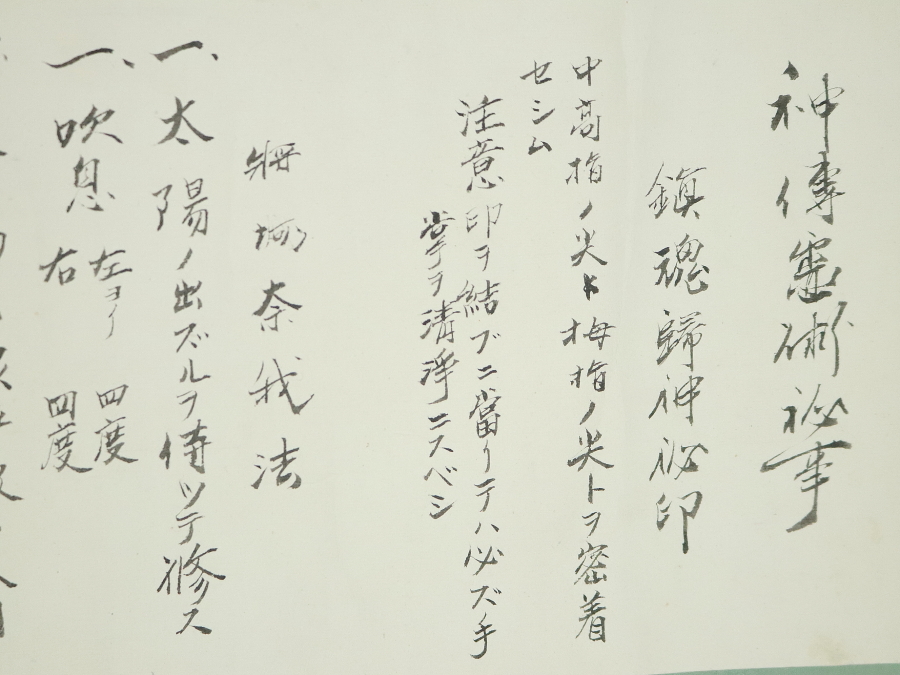 神傳靈術祕事
鎭魂歸神祕印
中高指ノ尖ト梅指ノ尖トヲ密着
セシム
注意印ヲ結ブニ當リテハ必ズ手
掌ヲ清淨ニスベシ
奈我法
一、太陽ノ出ズルヲ待ツテ修ス
一、吹息 左ヨリ 四度
右 四度